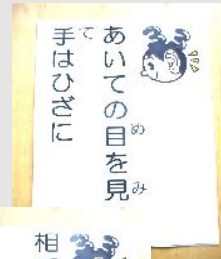 あいての目を見
手はひざに
相